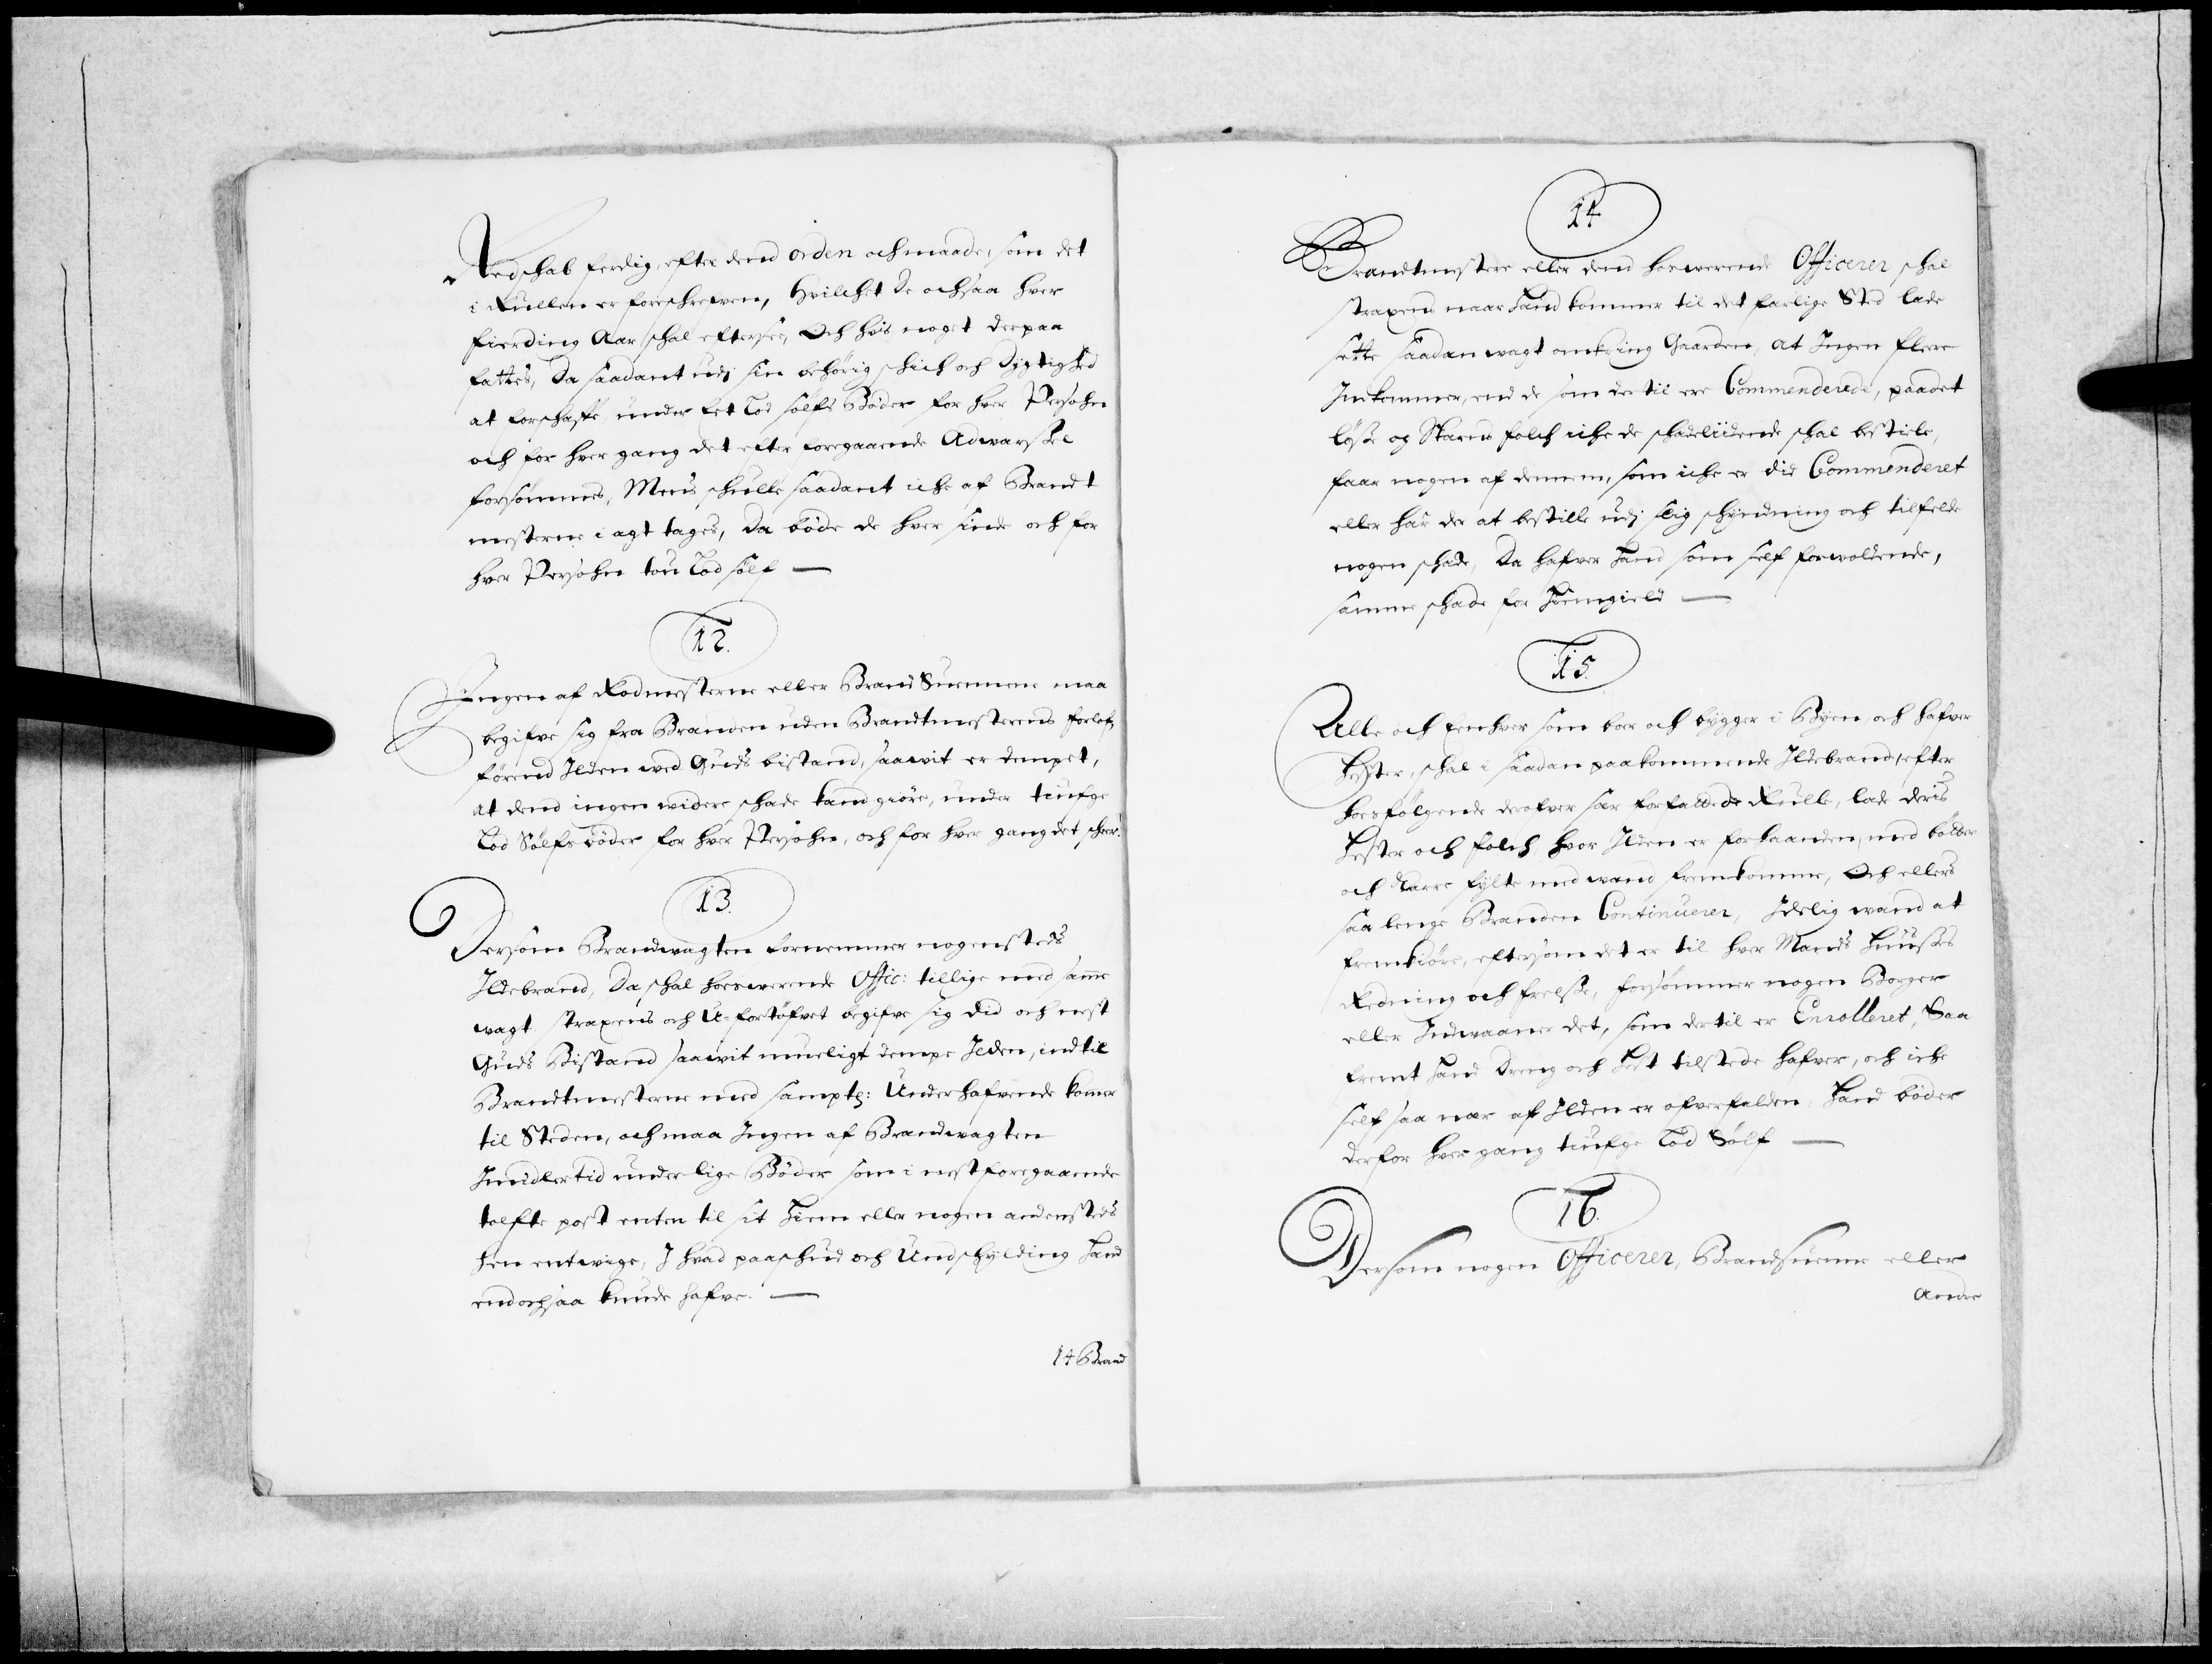 Redschab ferdig, efter dend orden och maade, som det
i Rullen er foreschrefven, Hvilchet De ochsaa hver
fierding Aar schal eftersee, Och hvis noget derpaa
fattes, Da saadant udj sin behörig schich och Dygtighed
at forschaffe under Eet Lod sölfs Böder for hver Persohn
och for hver gang det efter foregaaende Adwarssel
forsömmes, Mens schulle saadant iche af Brandt
mesterne i agt tages, Da böde de hver sinde och for
hver Persohn tou Lod sölf —
12.
Ingen af Rodmesterne eller BrandSuennene maa
begifve sig fra Branden uden Brandtmesterens forlof,
förend Ilden wed Guds bistand, saawit er dempet,
at dend ingen widere schade kand giöre, under tiufge
Lod Sölfs böder for hver Persohn, och for hver gang det scheer.
13.
Dersom Brandwagten fornemmer nogensteds
Ildebrand, Da schal hoswerende Offic: tillige med samme
wagt strapens och U-fortöfvet begifve sig did och nest
Guds Bistand saawit mueligt dempe Ilden, indtil
Brandtmesterne med sampt: Underhafvende kommer
til Steden, och maa Ingen af Brandwagten
Imidlertid under lige Böder som i nestforegaaende
tolfte post enten til sit Hiem eller nogen andensteds
hen entwige, I hvad paaschud och Undschylding Hand
endochsaa kunde hafve. —
14 Brand
14
Brandtmestere eller dend hoswerende Officerer schal
strapens naar Hand kommer til det farlige Sted lade
sette saadan wagt omkring Gaarden, at Ingen flere
Indkommer, end de som der til ere Commenderede, paadet
löse og Skarns folch iche de schadeliidende schal bestiele,
faar nogen af dennem, som iche er did Commenderet
eller har der at bestille udj slig schyndning och tilfelde
nogen schade, Da hafver Hand som self forwoldende,
samme schade for Hiemgield —
15.
Alle och Eenhver som boer och bygger i Byen och hafver
Hester, schal i saadan paakommende Ildebrand, efter
hosfölgende derofver her forfattede Rulle, lade deris
Hester och folch hvor Ilden er forhaanden, med böller
och Karre fylte med wand fremkomme, Och ellers
saa lenge Branden Continuerer, Idelig wand at
fremkiöre, eftersom det er til hver Mands Huusses
Redning och frelsse, forsömmer nogen Borger
eller Indwaaner det, som dertil er Enrolleret, Saa
fremt Hand Dreng och Hest tilstede hafver, och iche
self saa nær af Ilden er ofverfalden, Hand böder
derfor hver gang tiufge Lod Sölf —
16.
Dersom nogen Officerer, Brandsuenne eller
Andre